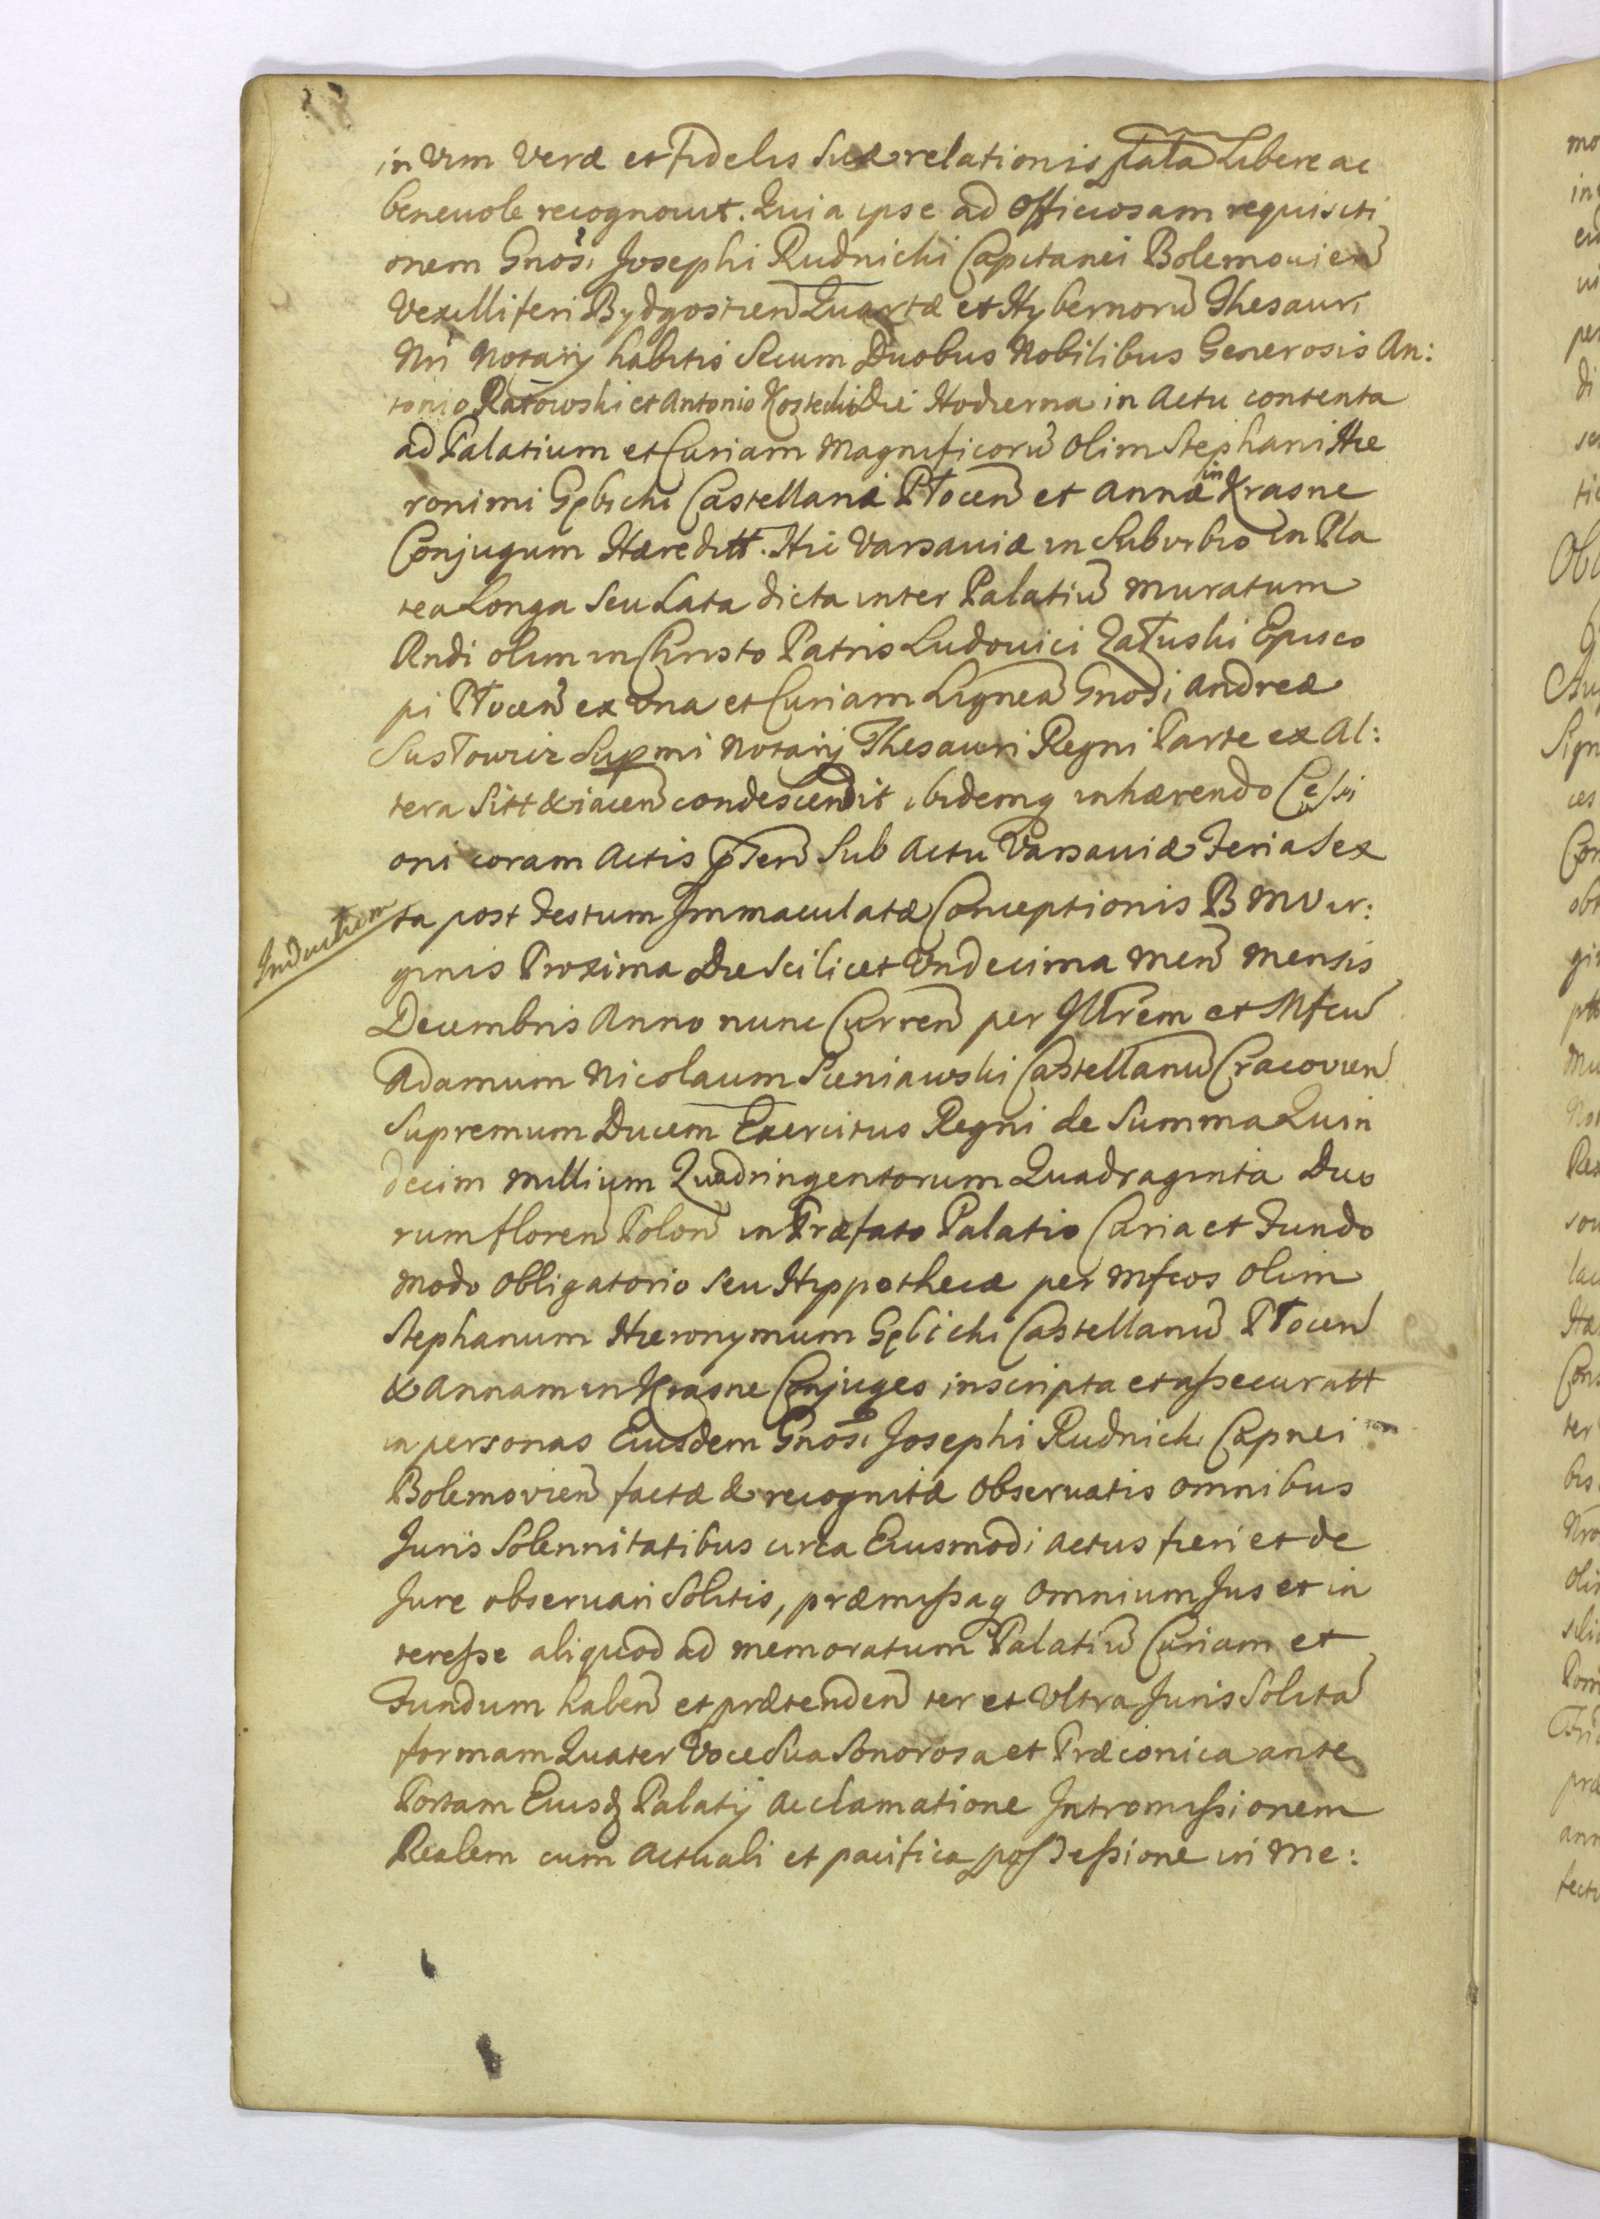 in Vim Veræ et Fidelis Suæ relationis Libere ac
benevole recognovit. Quia ipse ad Officiosam requisiti
onem Gnosi Josephi Rudnicki Capitanei Bolemovien
Vexilliferi Bydgostien Quartæ et Hybernoru Thesauri
Nri Notarij habitis Secum Duobus Nobilibus Generosis An:
tonio Ratowski et Antonio Die Hodierna in Actu contenta
ad Palatium et Curiam Magnificoru Olim Stephani Hie
ronimi Gębicki Castellani Płocen et Annæ in Krasne
Conjugum Hæreditt. Hic Varsaviæ in Suburbio in Pla
tea Longa Seu Lata dicta inter Palatiu muratum
Rndi olim in Christo Patris Ludovici Załuski Episco
pi Płocen ex Una et Curiam Ligneã Gnosi Andreæ
Supmi Notarij Thesauri Regni Parte ex Al:
tera Sitt & iacen condescendit ibidemq inhærendo Cessi
oni coram Actis pnten Sub Actu Varsaviæ Feria Sex
Induction
ta post Festum Immaculatæ Conceptionis B M Vir:
ginis Proxima Die Scilicet Undecima Men Mensis
Decembris Anno nunc Curren per Illrem et Mfcu
Adamum Nicolaum Sieniawski Castellanu Cracovien
Supremum Ducem Exercitus Regni de Summa Quin
decim Millium Quadringentorum Quadraginta Duo
rum floren Polon in Præfato Palatio Curia et Fundo
Modo Obligatorio seu Hyppothecæ per Mfcos Olim
Stephanum Hieronymum Gębicki Castellanu Płocen
& Annam in Krasne Conjuges inscripta et assecuratt
in personas Eiusdem Gnosi Josephi Rudnicki Capnei
Bolemovien factæ & recognitæ Observatis omnibus
Juris Solennitatibus circa Eiusmodi actus fieri et de
Jure observari Solitis, præmissaq Omnium Jus et in
teresse aliquod ad memoratum Palatiu Curiam et
Fundum haben et prætenden ter et Ultra Juris Solitã
formam Quater Voce Sua Sonorosa et Præconica ante
Portam Eiusd Palatij Acclamatione Intromissionem
Realem cum Actuali et pacifica possessione in Me: